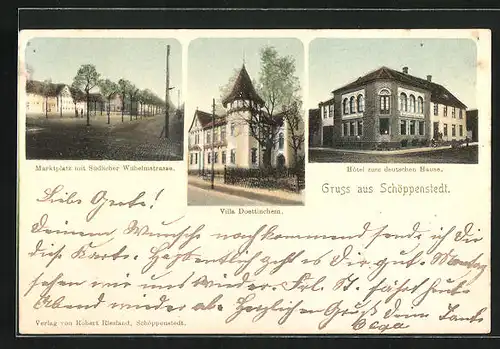 Marktplatz mit Südlicher Wilhelmstrasse.
Villa Doettinchem.
Hôtel zum deutschen Hause.
Gruss aus Schöppenstedt.
Liebe Grete!
Deinem Wunsch nachkommend sende ich Dir
diese Karte. Hoffentlich geht es Dir gut. Montag
sehen wir uns wieder. Frl. H. fährt heute
Abend wieder ab. Herzlichen Gruß Deine Tante
Verlag von Robert Riesland, Schöppenstedt.